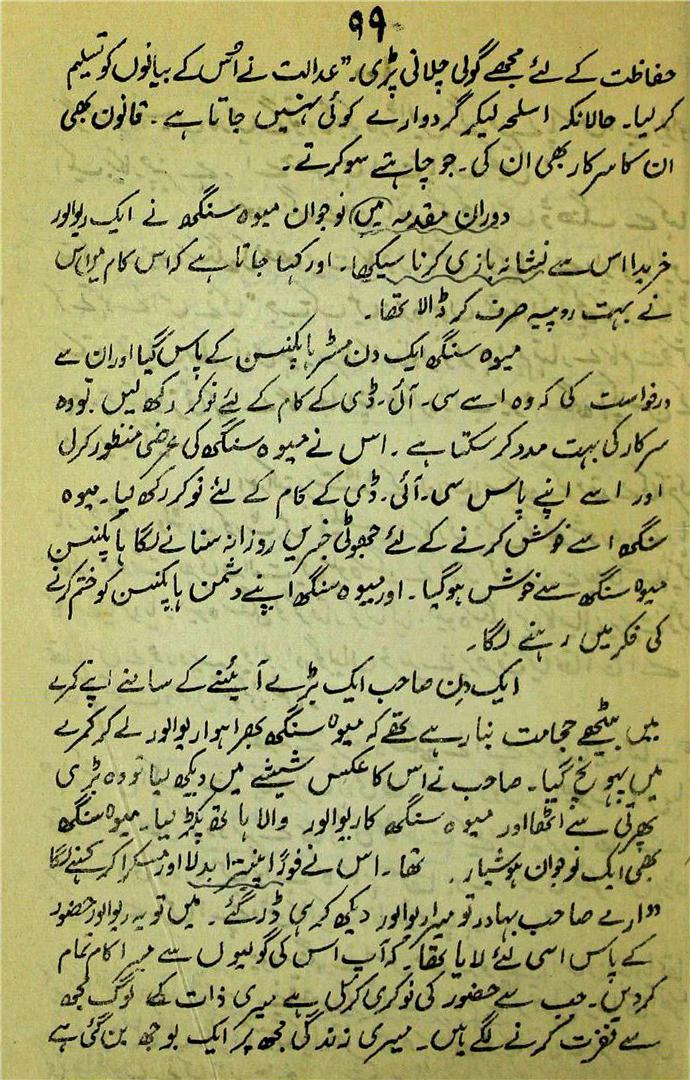 ۹۹
حفاظت کے لئے مجھے گولی چلانی پڑی۔" عدالت نے اُس کے بیانوں کو تسلیم
کر لیا۔ حالانکہ اسلحہ لیکر گردوارے کوئی نہیں جاتا ہے۔ قانون بھی
ان کا سرکار بھی ان کی۔ جو چاہتے سو کرتے۔
دوران مقدمہ میں نوجوان میوہ سنگھ نے ایک ریوالور
خریدا اس سے نشانہ بازی کرنا سیکھا۔ اور کہا جاتا ہے کہ اس کام میں اس
نے بہت روپیہ صرف کر ڈالا تھا۔
میوہ سنگھ ایک دن مسٹر ہاپکنسن کے پاس گیا اور ان سے
درخواست کی کہ وہ اسے سی۔ آئی۔ ڈی کے کام کے لئے نوکر رکھ لیں تو وہ
سرکار کی بہت مدد کر سکتا ہے۔ اس نے میوہ سنگھ کی عرضی منظور کرلی
اور اسے اپنے پاس سی۔ آئی۔ ڈی کے کام کے لئے نوکر رکھ لیا۔ میوہ
سنگھ اسے خوش کرنے کے لئے جھوٹی خبریں روزانہ سنانے لگا ہاپکنسن
میوہ سنگھ سے خوش ہو گیا۔ اور میوہ سنگھ اپنے دشمن ہاپکنسن کو ختم کرنے
کی فکر میں رہنے لگا۔
ایک دن صاحب ایک بڑے آئینے کے سامنے اپنے کمرے
میں بیٹھے حجامت بنا رہے تھے کہ میوہ سنگھ بھرا ہوا ریوالور لے کر کمرے
میں پہونچ گیا۔ صاحب نے اس کا عکس شیشے میں دیکھ لیا تو وہ بڑی
پھرتی سے اٹھا اور میوہ سنگھ کا ریوالور والا ہاتھ پکڑ لیا۔ میوہ سنگھ
بھی ایک نوجوان ہوشیار تھا۔ اس نے فوراً پینترا بدلا اور مسکرا کر کہنے لگا
"ارے صاحب بہادر تو میرا ریوالور دیکھ کر ہی ڈر گئے۔ میں تو یہ ریوالور حضور
کے پاس اسی لئے لایا تھا کہ آپ اس کی گولیوں سے میرا کام تمام
کر دیں۔ جب سے حضور کی نوکری کرلی ہے میری ذات کے لوگ مجھ
سے نفرت کرنے لگے ہیں۔ میری زندگی مجھ پر ایک بوجھ بن گئی ہے